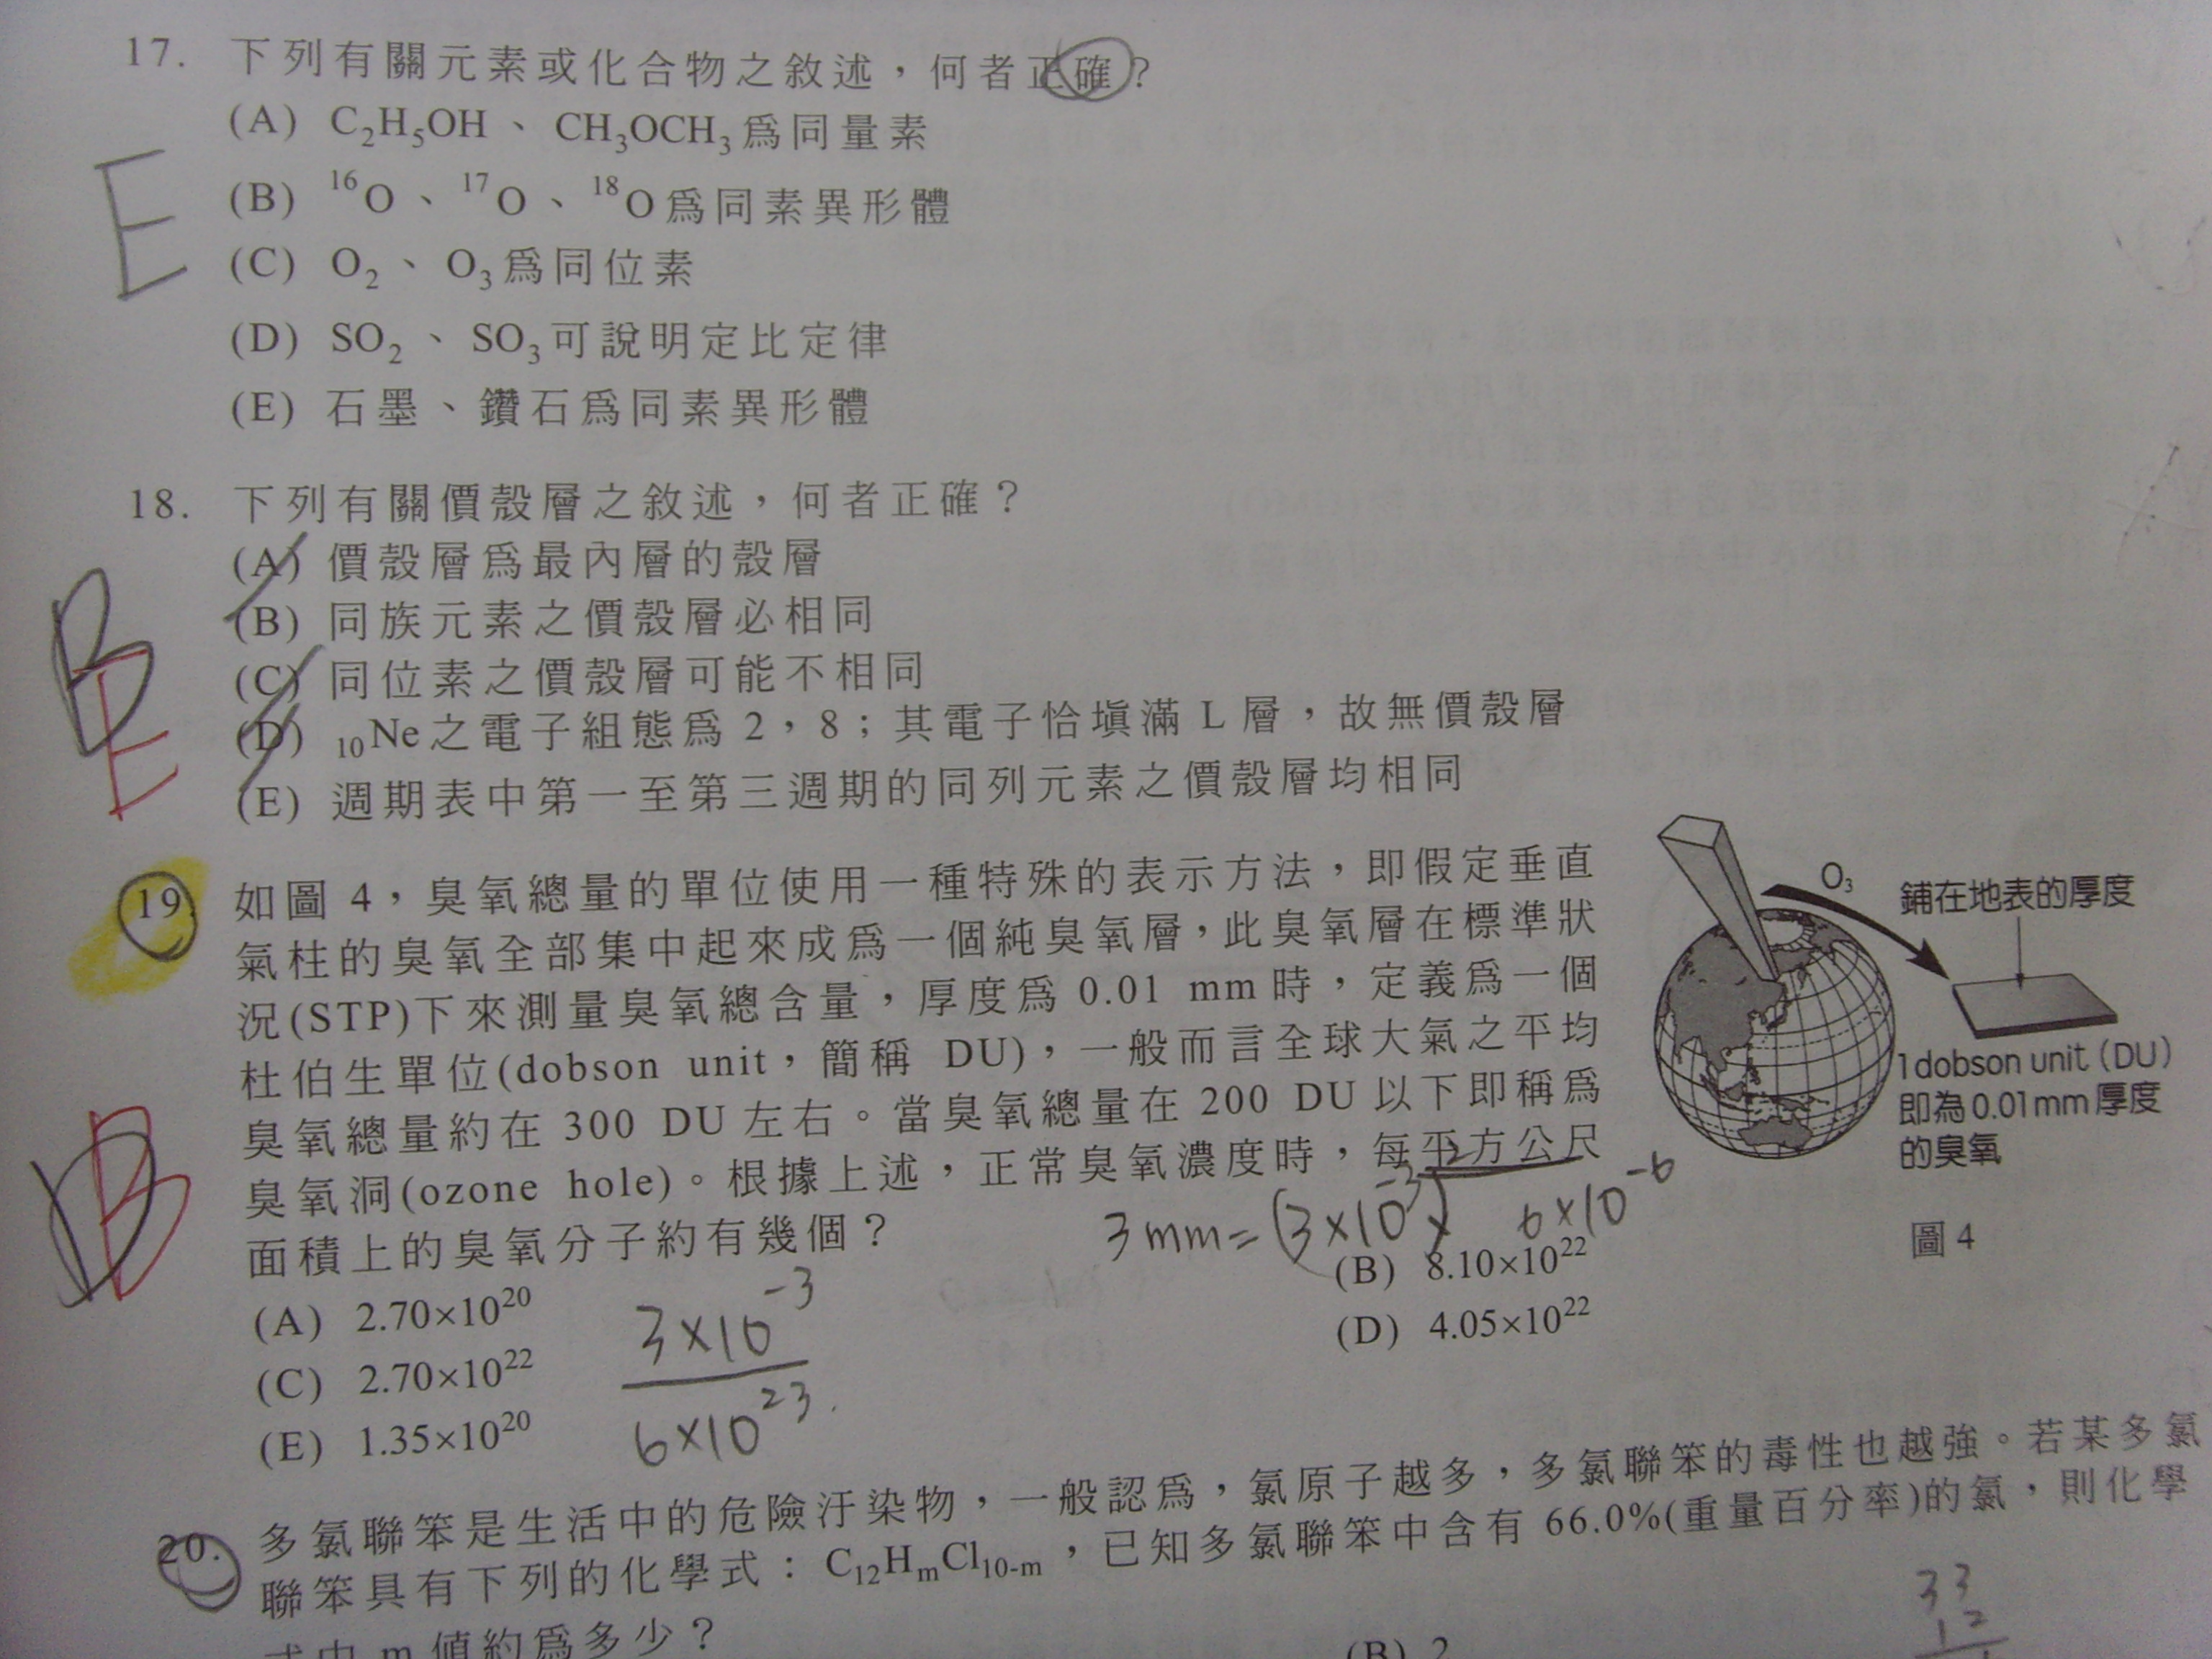 17. 下列有關元素或化合物之敘述，何者正確？
(A) C₂H₅OH、CH₃OCH₃爲同量素
(B) ¹⁶O、¹⁷O、¹⁸O爲同素異形體
(C) O₂、O₃爲同位素
(D) SO₂、SO₃可說明定比定律
(E) 石墨、鑽石爲同素異形體
E
18. 下列有關價殼層之敘述，何者正確？
(A) 價殼層爲最內層的殼層
(B) 同族元素之價殼層必相同
(C) 同位素之價殼層可能不相同
(D) ₁₀Ne之電子組態爲 2，8；其電子恰填滿 L 層，故無價殼層
(E) 週期表中第一至第三週期的同列元素之價殼層均相同
B
E
19. 如圖 4，臭氧總量的單位使用一種特殊的表示方法，即假定垂直
氣柱的臭氧全部集中起來成爲一個純臭氧層，此臭氧層在標準狀
況(STP)下來測量臭氧總含量，厚度爲 0.01 mm 時，定義爲一個
杜伯生單位(dobson unit，簡稱 DU)，一般而言全球大氣之平均
臭氧總量約在 300 DU 左右。當臭氧總量在 200 DU 以下即稱爲
臭氧洞(ozone hole)。根據上述，正常臭氧濃度時，每平方公尺
面積上的臭氧分子約有幾個？
O₃
鋪在地表的厚度
1 dobson unit (DU)
即為0.01mm厚度
的臭氧
圖 4
D
B
3mm=(3×10⁻³)² 6×10⁻⁶
(A) 2.70×10²⁰
(B) 8.10×10²²
(C) 2.70×10²²
(D) 4.05×10²²
(E) 1.35×10²⁰
3×10⁻³
6×10²³
20. 多氯聯笨是生活中的危險汙染物，一般認爲，氯原子越多，多氯聯笨的毒性也越強。若某多氯
聯笨具有下列的化學式：C₁₂HₘCl₁₀₋ₘ，已知多氯聯笨中含有 66.0%(重量百分率)的氯，則化學
式中 m 值約爲多少？
(B) 2
33
12